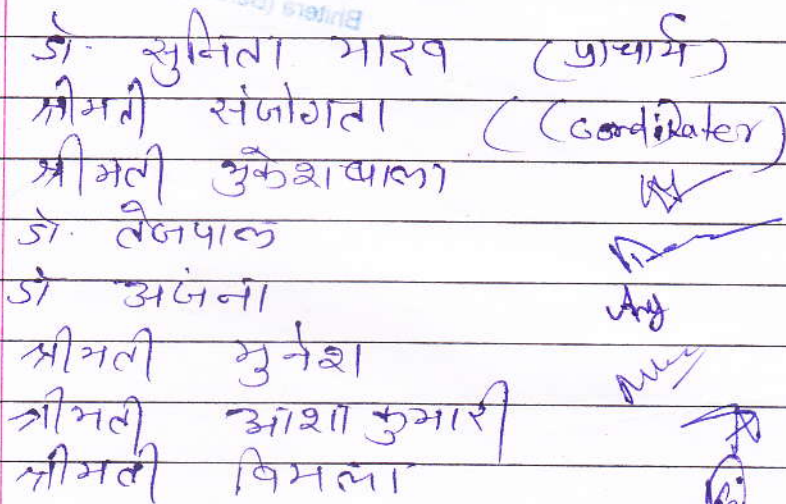 डॉ. सुनिता यादव (प्राचार्य)
श्रीमती संजोगता ((Cordinater)
श्रीमती मुकेशबाला
डॉ. तेजपाल
डॉ अजंना
श्रीमती मुनेश
श्रीमती आशा कुमारी
श्रीमती विमला